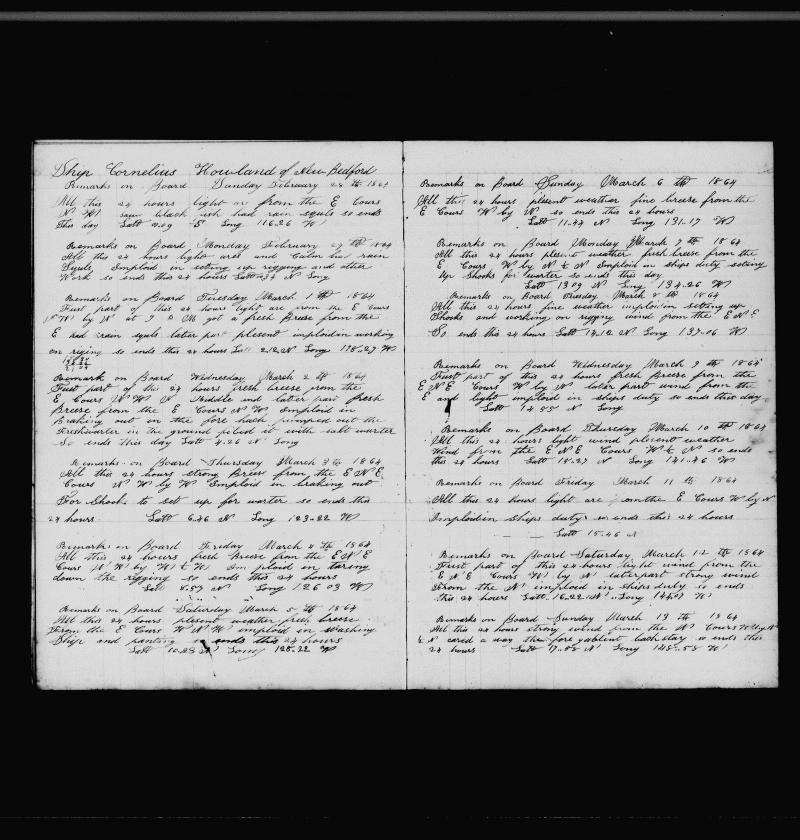 Ship Cornelius Howland of New Bedford
Remarks on Board Sunday February 28 th 1864
All this 24 hours light from the E Cours
N W saw black ish had rain squls so ends
This day Latt S Long 116.26 W
Remarks on Board Monday February 29 th
All this 24 hours light ares and Calm had rain
Squls Imploid in seting up rigging and other
Work so ends this 24 hours Latt N Long
Remarks on Board Tuesday March 1 th 1864
Fust part of this 24 hours light are from the E Cours
W by N at P M got a fresh Brese from the
E had rain squls later part plesent imploid in working
on riging so ends this 24 hours Latt 2.12 N Long 118.27 W
Remark on Board Wednesday March 2 th 1864
Fust part of the 24 hours fresh breese from the
E Cours N W N Middle and later part fresh
Breese from the E Cours N W Imploid in
Braking out in the fore hach pumped out the
Freshwarter in the ground filled it with salt warter
So ends this day Latt 4.26 N Long
Remarks on Board Thursday March 3 th 1864
All this 24 hours strong Breese from the E N E
Cours N W by W Imploid in braking out
For Shook to set up for warter so ends this
24 hours Latt 6.46 N Long 123.22 W
Remarks on Board Friday March 4 th 1864
All this 24 hours fresh Breese from the E N E
Cours N W by W ½ W Imploid in taring
down the rigging so ends this 24 hours
Latt 8.57 N Long 126 03 W
Remarks on Board Saturday March 5 th 1864
All this 24 hours plesent weather fresh breese
From the E Cours W N W imploid in Washing
Ship and panting so ends this 24 hours
Latt 10.28 N Long 128.22 W
Remarks on Board Sunday March 6 th 1864
All this 24 hours plesent weather fine breese from the
E Cours W by N so ends this 24 hours
Latt 11.44 N Long 131.17 W
Remarks on Board Monday March 7 th 1864
All this 24 hours plesent weather fresh breese from the
E Cours W by N ½ N Imploid in ships duty seteing
up Shooks for warter so ends this day
Latt 13 09 N Long 134.26 W
Remarks on Board Tuesday March 8 th 1864
All this 24 hours fine weather imploid in setting up
Shooks and working on rigging wind from the E N E
So ends this 24 hour Latt 14.12 N Long 137.06 W
Remarks on Board Wednesday March 9 th 1864
Fust part of this 24 hours fresh Breese from the
E N E Cours W by N later part wind from the
E and light imploid in ships duty so ends this day
Latt 14 55 N Long
Remarks on Board Thursday March 10 th 1864
All this 24 hours light wind plesent weather
Wind from the E N E Cours W ½ N so ends
this 24 hours Latt 15.27 N Long 141.46 W
Remarks on Board Friday March 11 th 1864
All this 24 hours light are from the E Cours W by N
Imploid in Ships duty so ends this 24 hours
Latt 15.46 N
Remarks on Board Saturday March 12 th 1864
Fust part of this 24 hours light wind from the
E N E Cours W by N laterpart strong wind
From the N imploid in ships duty so ends
this 24 hours Latt 16.22 N Long W
Remarks on Board Sunday March 13 th 1864
All this 24 hours strong wind from the N Cours W by N
½ N cared a way the fore gablent backstay so ends this
24 hours Latt 17.08 N Long 148.58 W